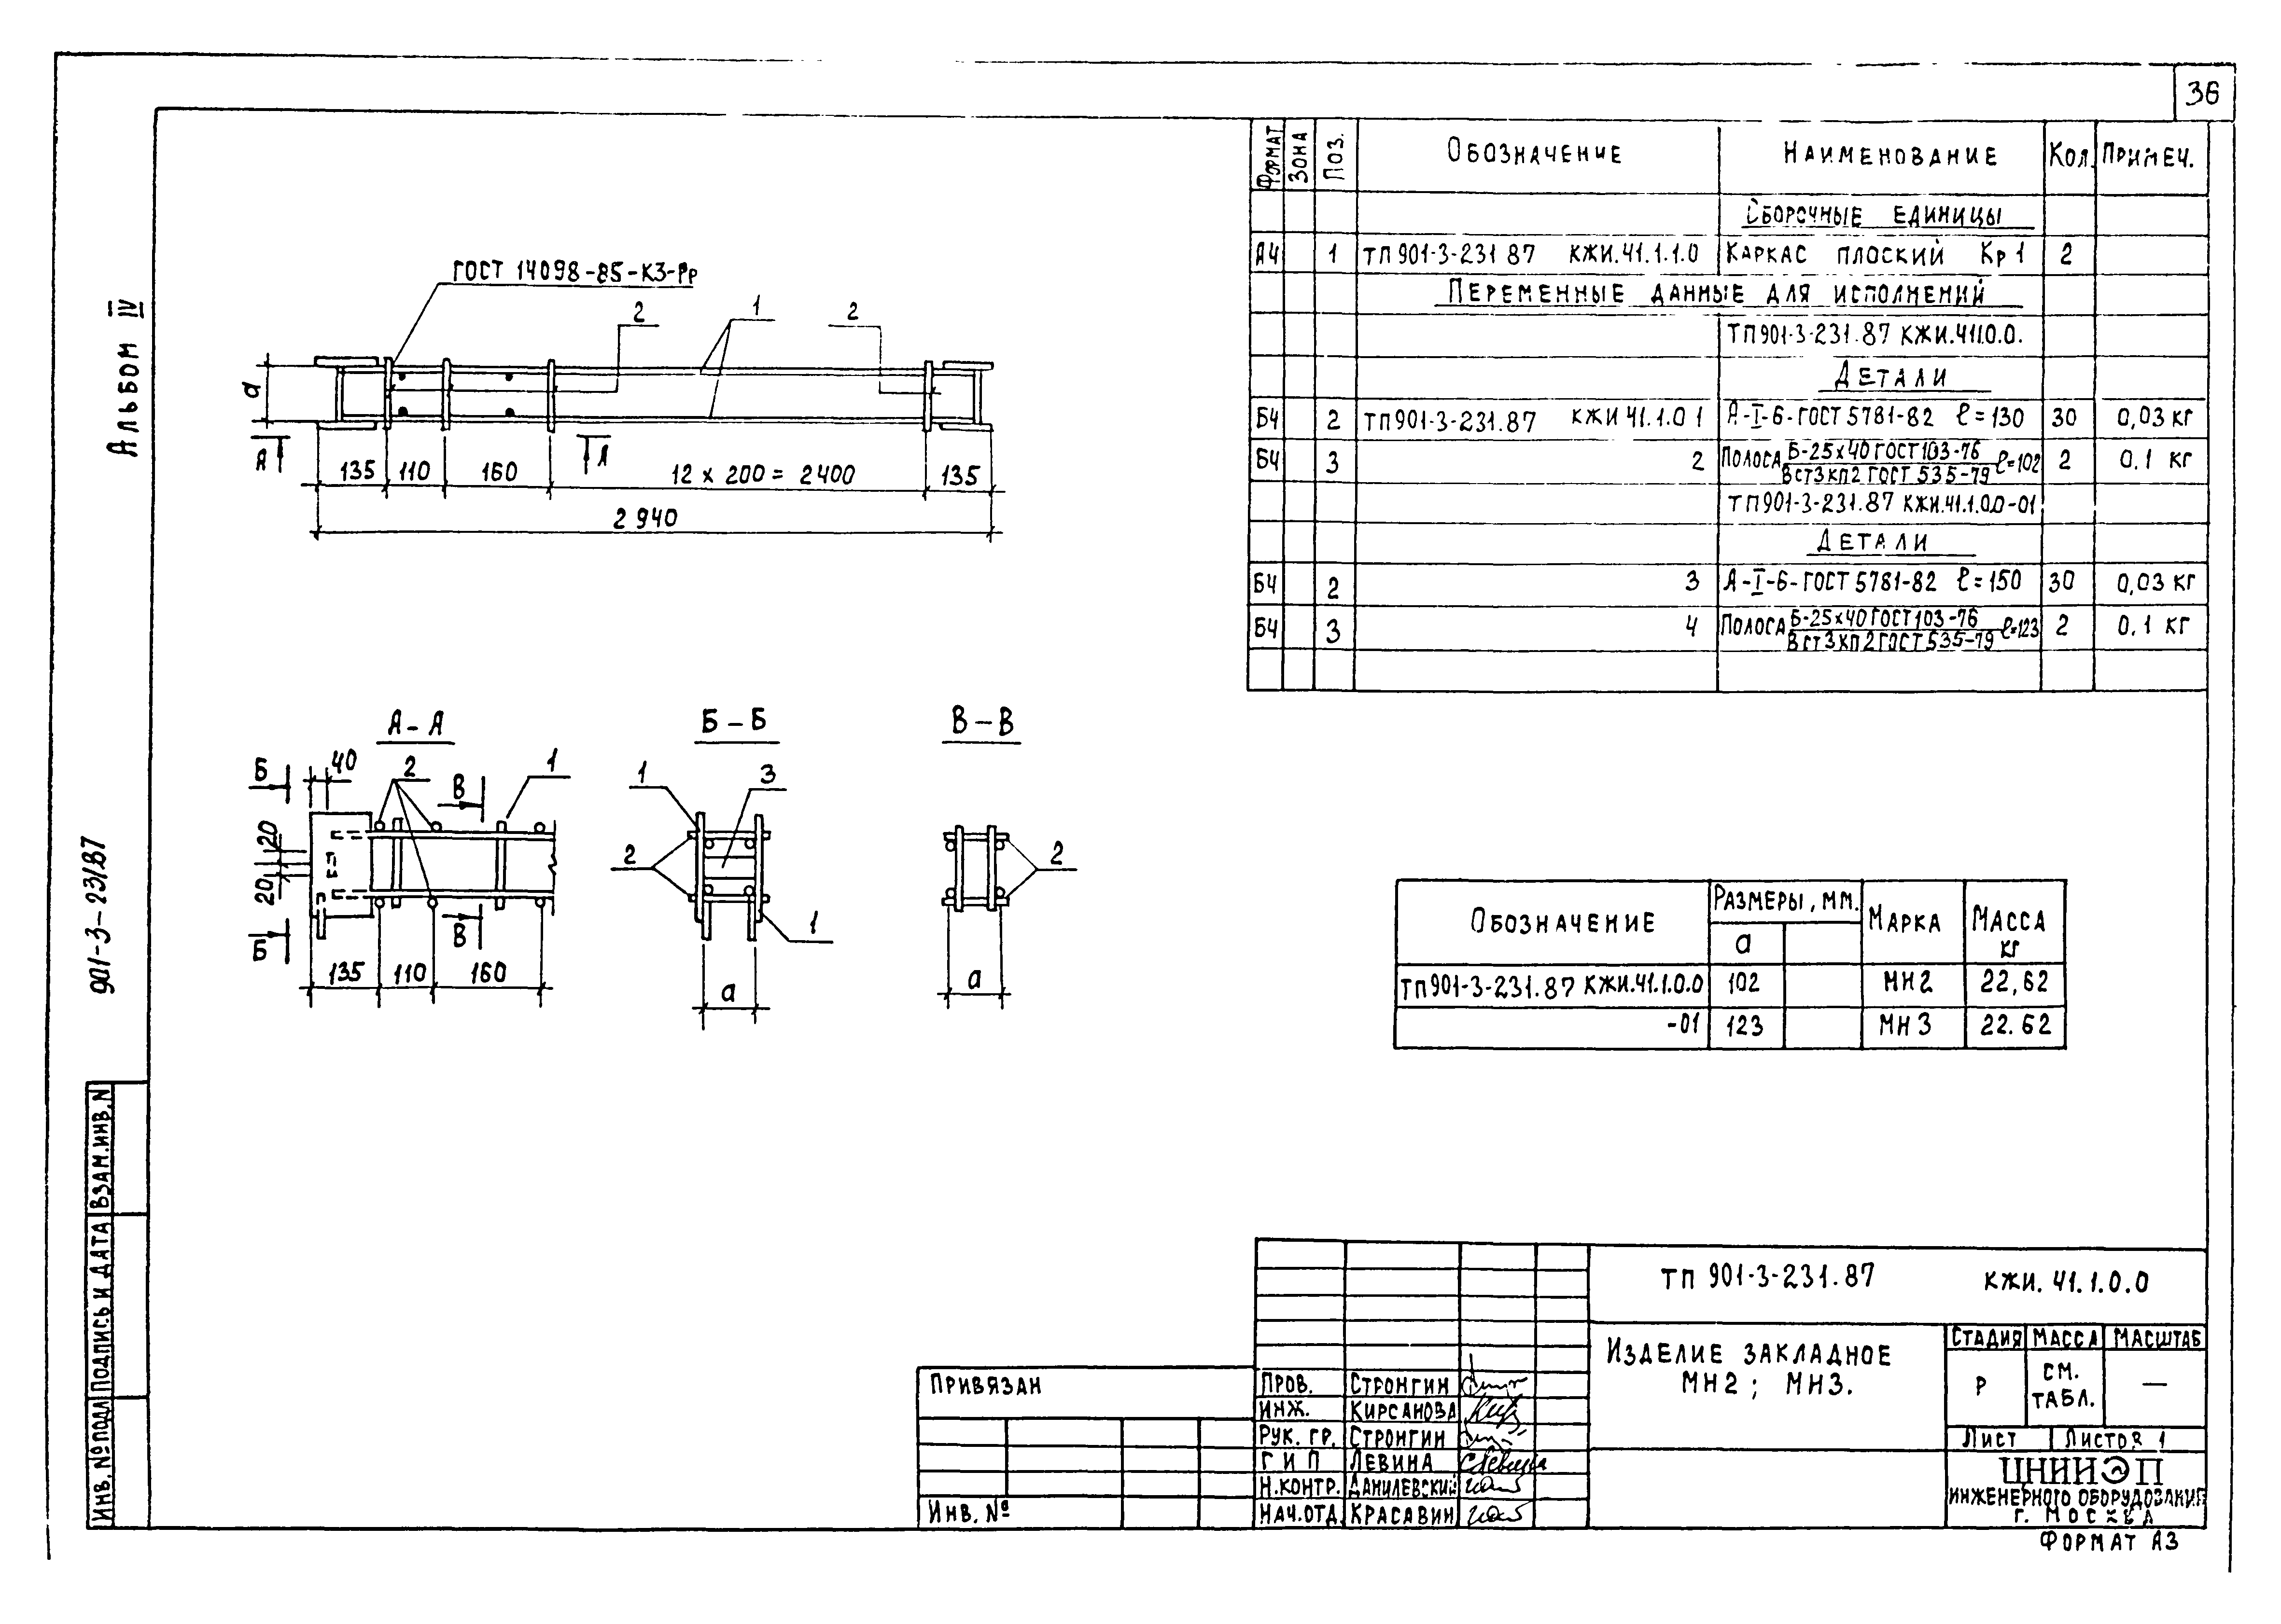 36
Альбом IV
901-3-231.87
ГОСТ 14098-85-К3-Рр
2
1
2
а
А
А
135
110
160
12 х 200 = 2400
135
2940
Формат
Зона
Поз.
Обозначение
Наименование
Кол.
Примеч.
Сборочные единицы
А4 1 ТП 901-3-231.87 КЖИ.41.1.1.0 Каркас плоский Кр1 2
Переменные данные для исполнений
ТП 901-3-231.87 КЖИ.41.1.0.0.
Детали
Б4 2 ТП 901-3-231.87 КЖИ 41.1.0 1 А-I-6-ГОСТ 5781-82 ℓ=130 30 0,03 кг
Б4 3 2 Полоса Б-25х40 ГОСТ 103-76 ℓ=102 2 0.1 кг
Вст3кп2 ГОСТ 535-79
ТП 901-3-231.87 КЖИ.41.1.0.0-01
Детали
Б4 2 3 А-I-6-ГОСТ 5781-82 ℓ=150 30 0,03 кг
Б4 3 4 Полоса Б-25х40 ГОСТ 103-76 ℓ=123 2 0.1 кг
Вст3кп2 ГОСТ 535-79
А-А
Б
40
2
В
1
20
20
Б
В
135
110
160
Б-Б
1
3
2
1
а
В-В
2
а
Обозначение
Размеры, мм.
а
Марка
Масса кг
ТП 901-3-231.87 КЖИ.41.1.0.0 102 МН2 22,62
-01 123 МН3 22.62
Инв. № подл
Подпись и дата
Взам.инв.N
Привязан
Инв. №
Пров. Стронгин
Инж. Кирсанова
Рук. гр. Стронгин
ГИП Левина
Н.контр. Данилевский
Нач.отд. Красавин
ТП 901-3-231.87 КЖИ. 41.1.0.0
Изделие закладное
МН2; МН3.
Стадия Масса Масштаб
Р см. табл. —
Лист Листов 1
ЦНИИЭП
инженерного оборудования
г. Москва
Формат А3